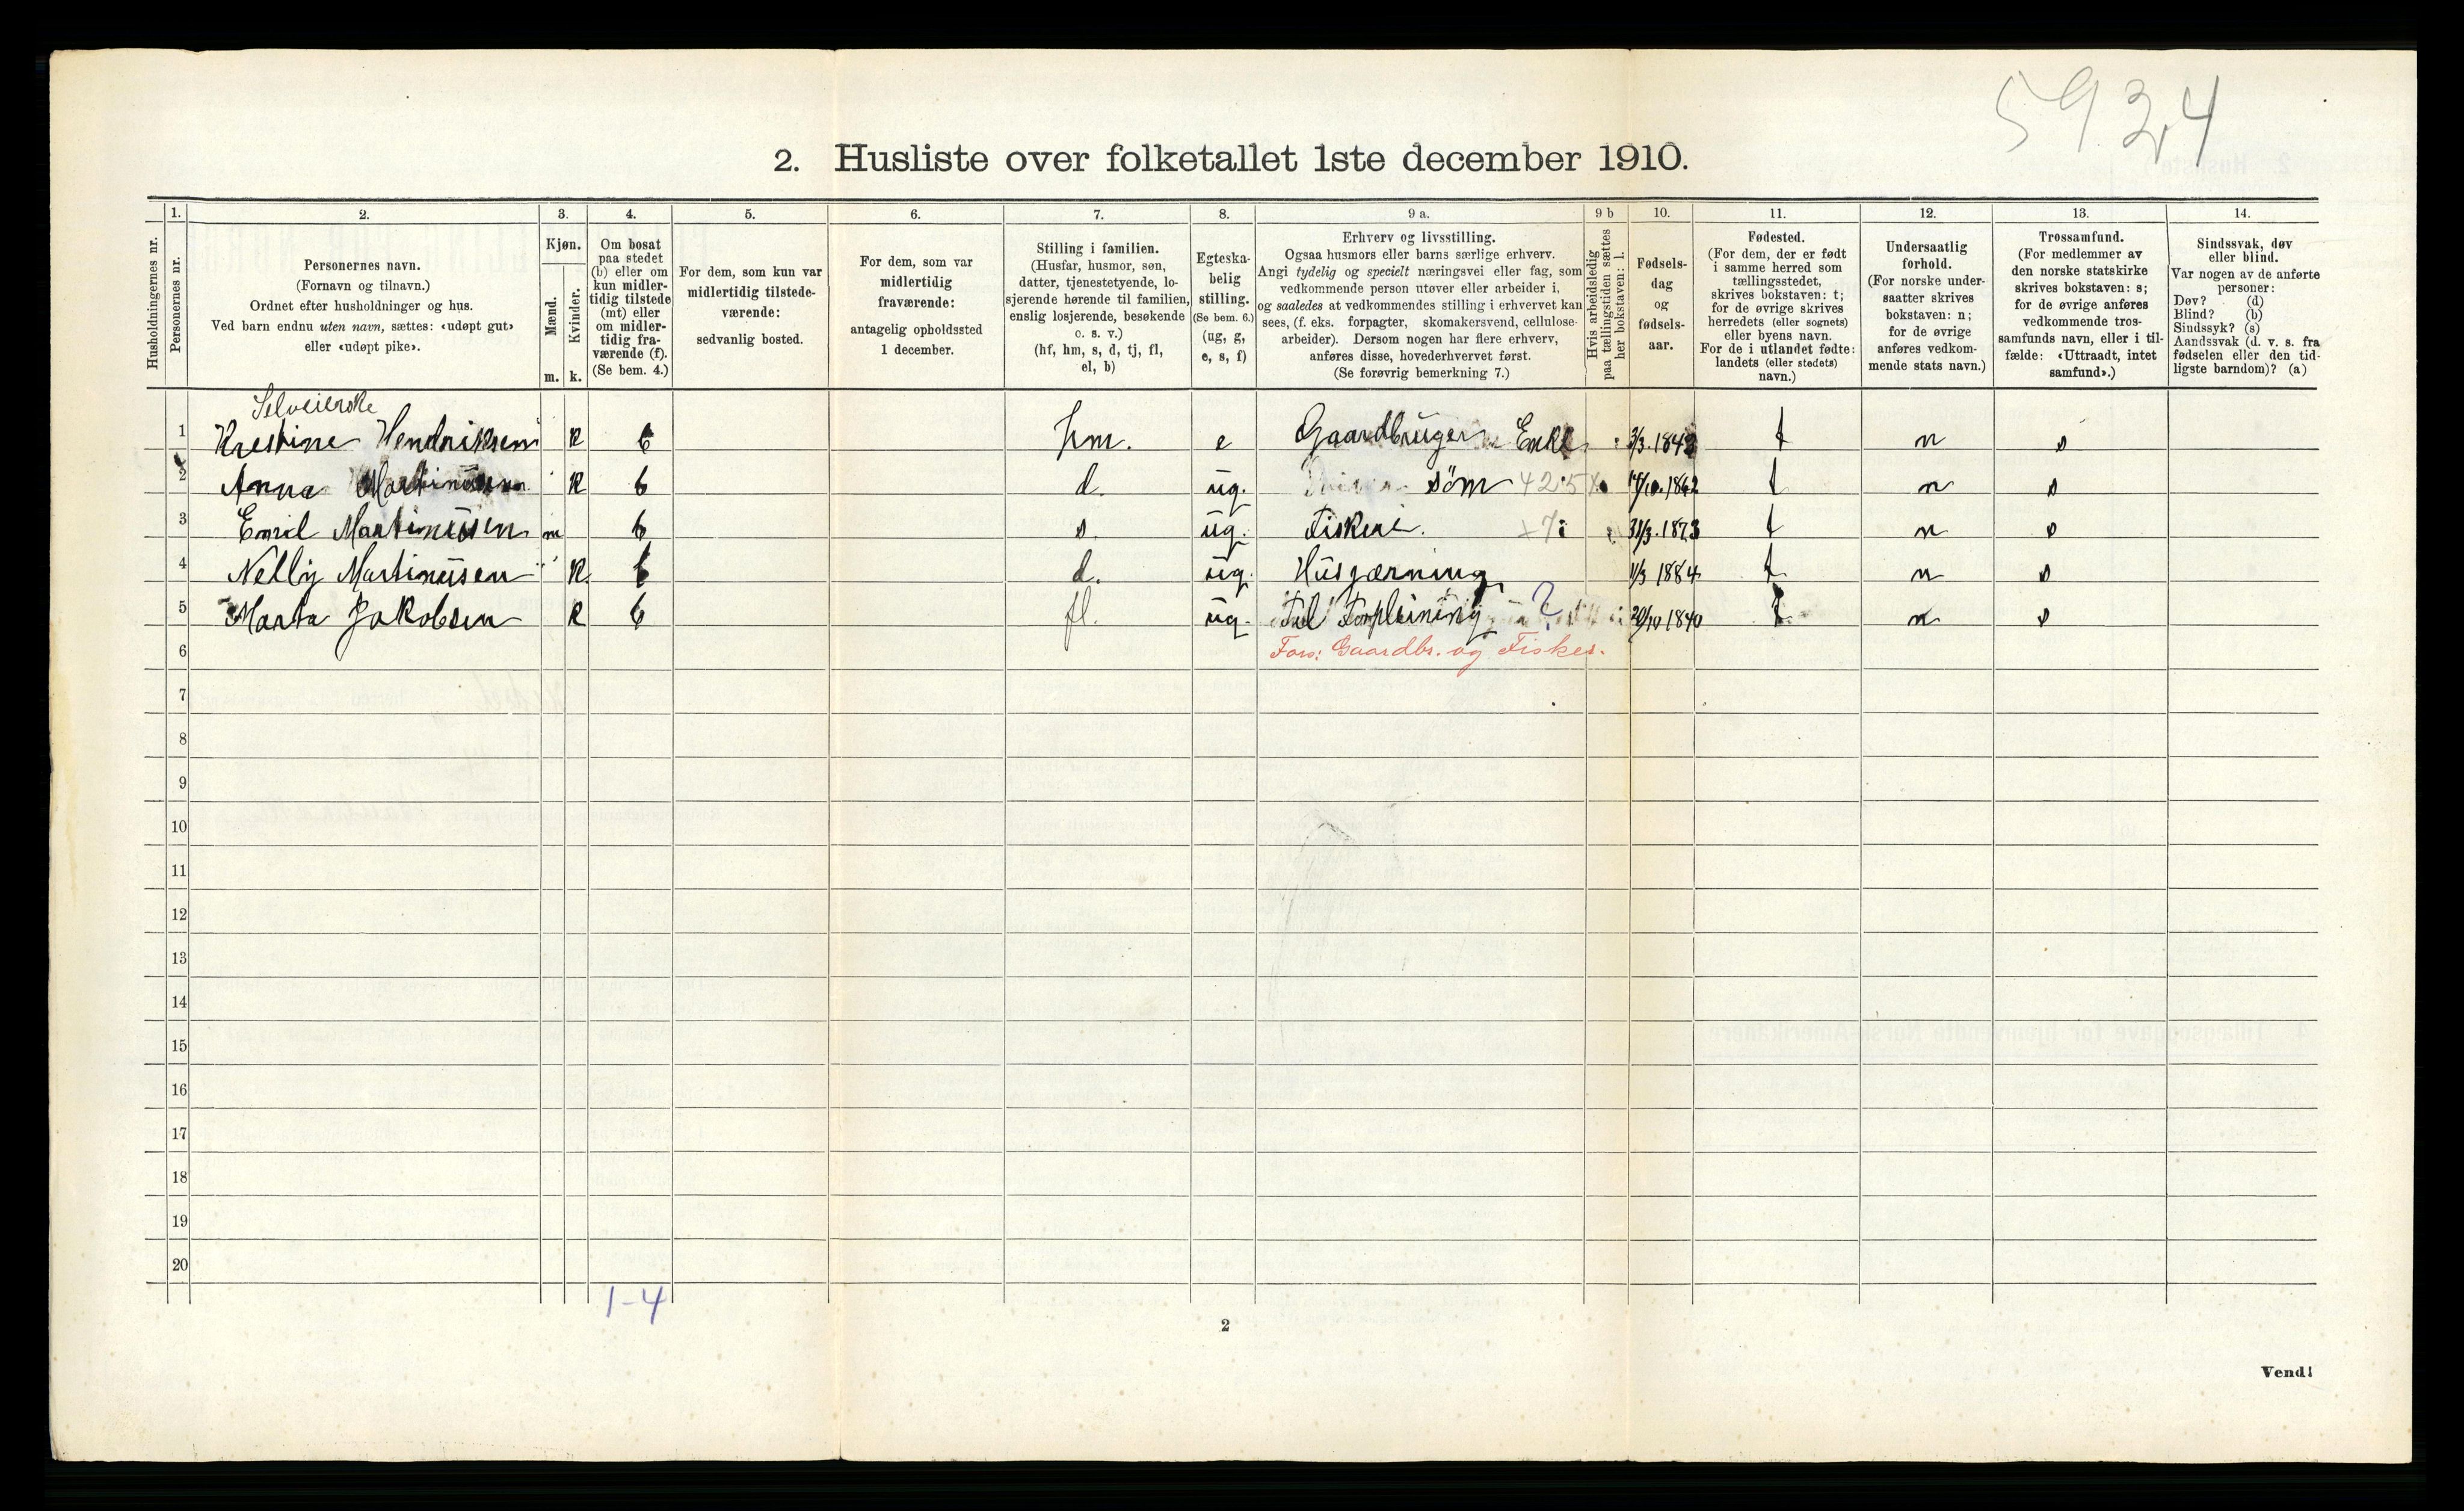 593,4
2. Husliste over folketallet 1ste december 1910.
Husholdningernes nr.
1. Personernes nr.
2. Personernes navn.
(Fornavn og tilnavn.)
Ordnet efter husholdninger og hus.
Ved barn endnu uten navn, sættes: «udøpt gut»
eller «udøpt pike».
3. Kjøn.
Mænd. m.
Kvinder. k.
4. Om bosat
paa stedet
(b) eller om
kun midler-
tidig tilstede
(mt) eller
om midler-
tidig fra-
værende (f).
(Se bem. 4.)
5. For dem, som kun var
midlertidig tilstede-
værende:
sedvanlig bosted.
6. For dem, som var
midlertidig
fraværende:
antagelig opholdssted
1 december.
7. Stilling i familien.
(Husfar, husmor, søn,
datter, tjenestetyende, lo-
sjerende hørende til familien,
enslig losjerende, besøkende
o. s. v.)
(hf, hm, s, d, tj, fl,
el, b)
8. Egteska-
belig
stilling.
(Se bem. 6.)
(ug, g,
e, s, f)
9 a. Erhverv og livsstilling.
Ogsaa husmors eller barns særlige erhverv.
Angi tydelig og specielt næringsvei eller fag, som
vedkommende person utøver eller arbeider i,
og saaledes at vedkommendes stilling i erhvervet kan
sees, (f. eks. forpagter, skomakersvend, cellulose-
arbeider). Dersom nogen har flere erhverv,
anføres disse, hovederhvervet først.
(Se forøvrig bemerkning 7.)
9 b Hvis arbeidsledig
paa tællingstiden sættes
her bokstaven: l.
10. Fødsels-
dag
og
fødsels-
aar.
11. Fødested.
(For dem, der er født
i samme herred som
tællingsstedet,
skrives bokstaven: t;
for de øvrige skrives
herredets (eller sognets)
eller byens navn.
For de i utlandet fødte:
landets (eller stedets)
navn.)
12. Undersaatlig
forhold.
(For norske under-
saatter skrives
bokstaven: n;
for de øvrige
anføres vedkom-
mende stats navn.)
13. Trossamfund.
(For medlemmer av
den norske statskirke
skrives bokstaven: s;
for de øvrige anføres
vedkommende tros-
samfunds navn, eller i til-
fælde: «Uttraadt, intet
samfund».)
14. Sindssvak, døv
eller blind.
Var nogen av de anførte
personer:
Døv? (d)
Blind? (b)
Sindssyk? (s)
Aandssvak (d. v. s. fra
fødselen eller den tid-
ligste barndom)? (a)
Selveierske
1 Krestine Hendriksen k b hm. e Gaardbruger Enke 3/3.1843 t n s
2 Anna Martinusen k b d. ug. söm 425 1862 t n s
3 Emil Martinusen m b s. ug. Fiskeri. 31/3.1873 t n s
4 Nelly Martinusen k. b d. ug. Husgærning 11/3 1884 t n s
5 Marta Jakobsen k b fl. ug. Ful Forpleining ? 20/10 1840 t n s
6 Fors: Gaardbr. og Fisker.
7
8
9
10
11
12
13
14
15
16
17
18
19
20
1-4
2
Vend!